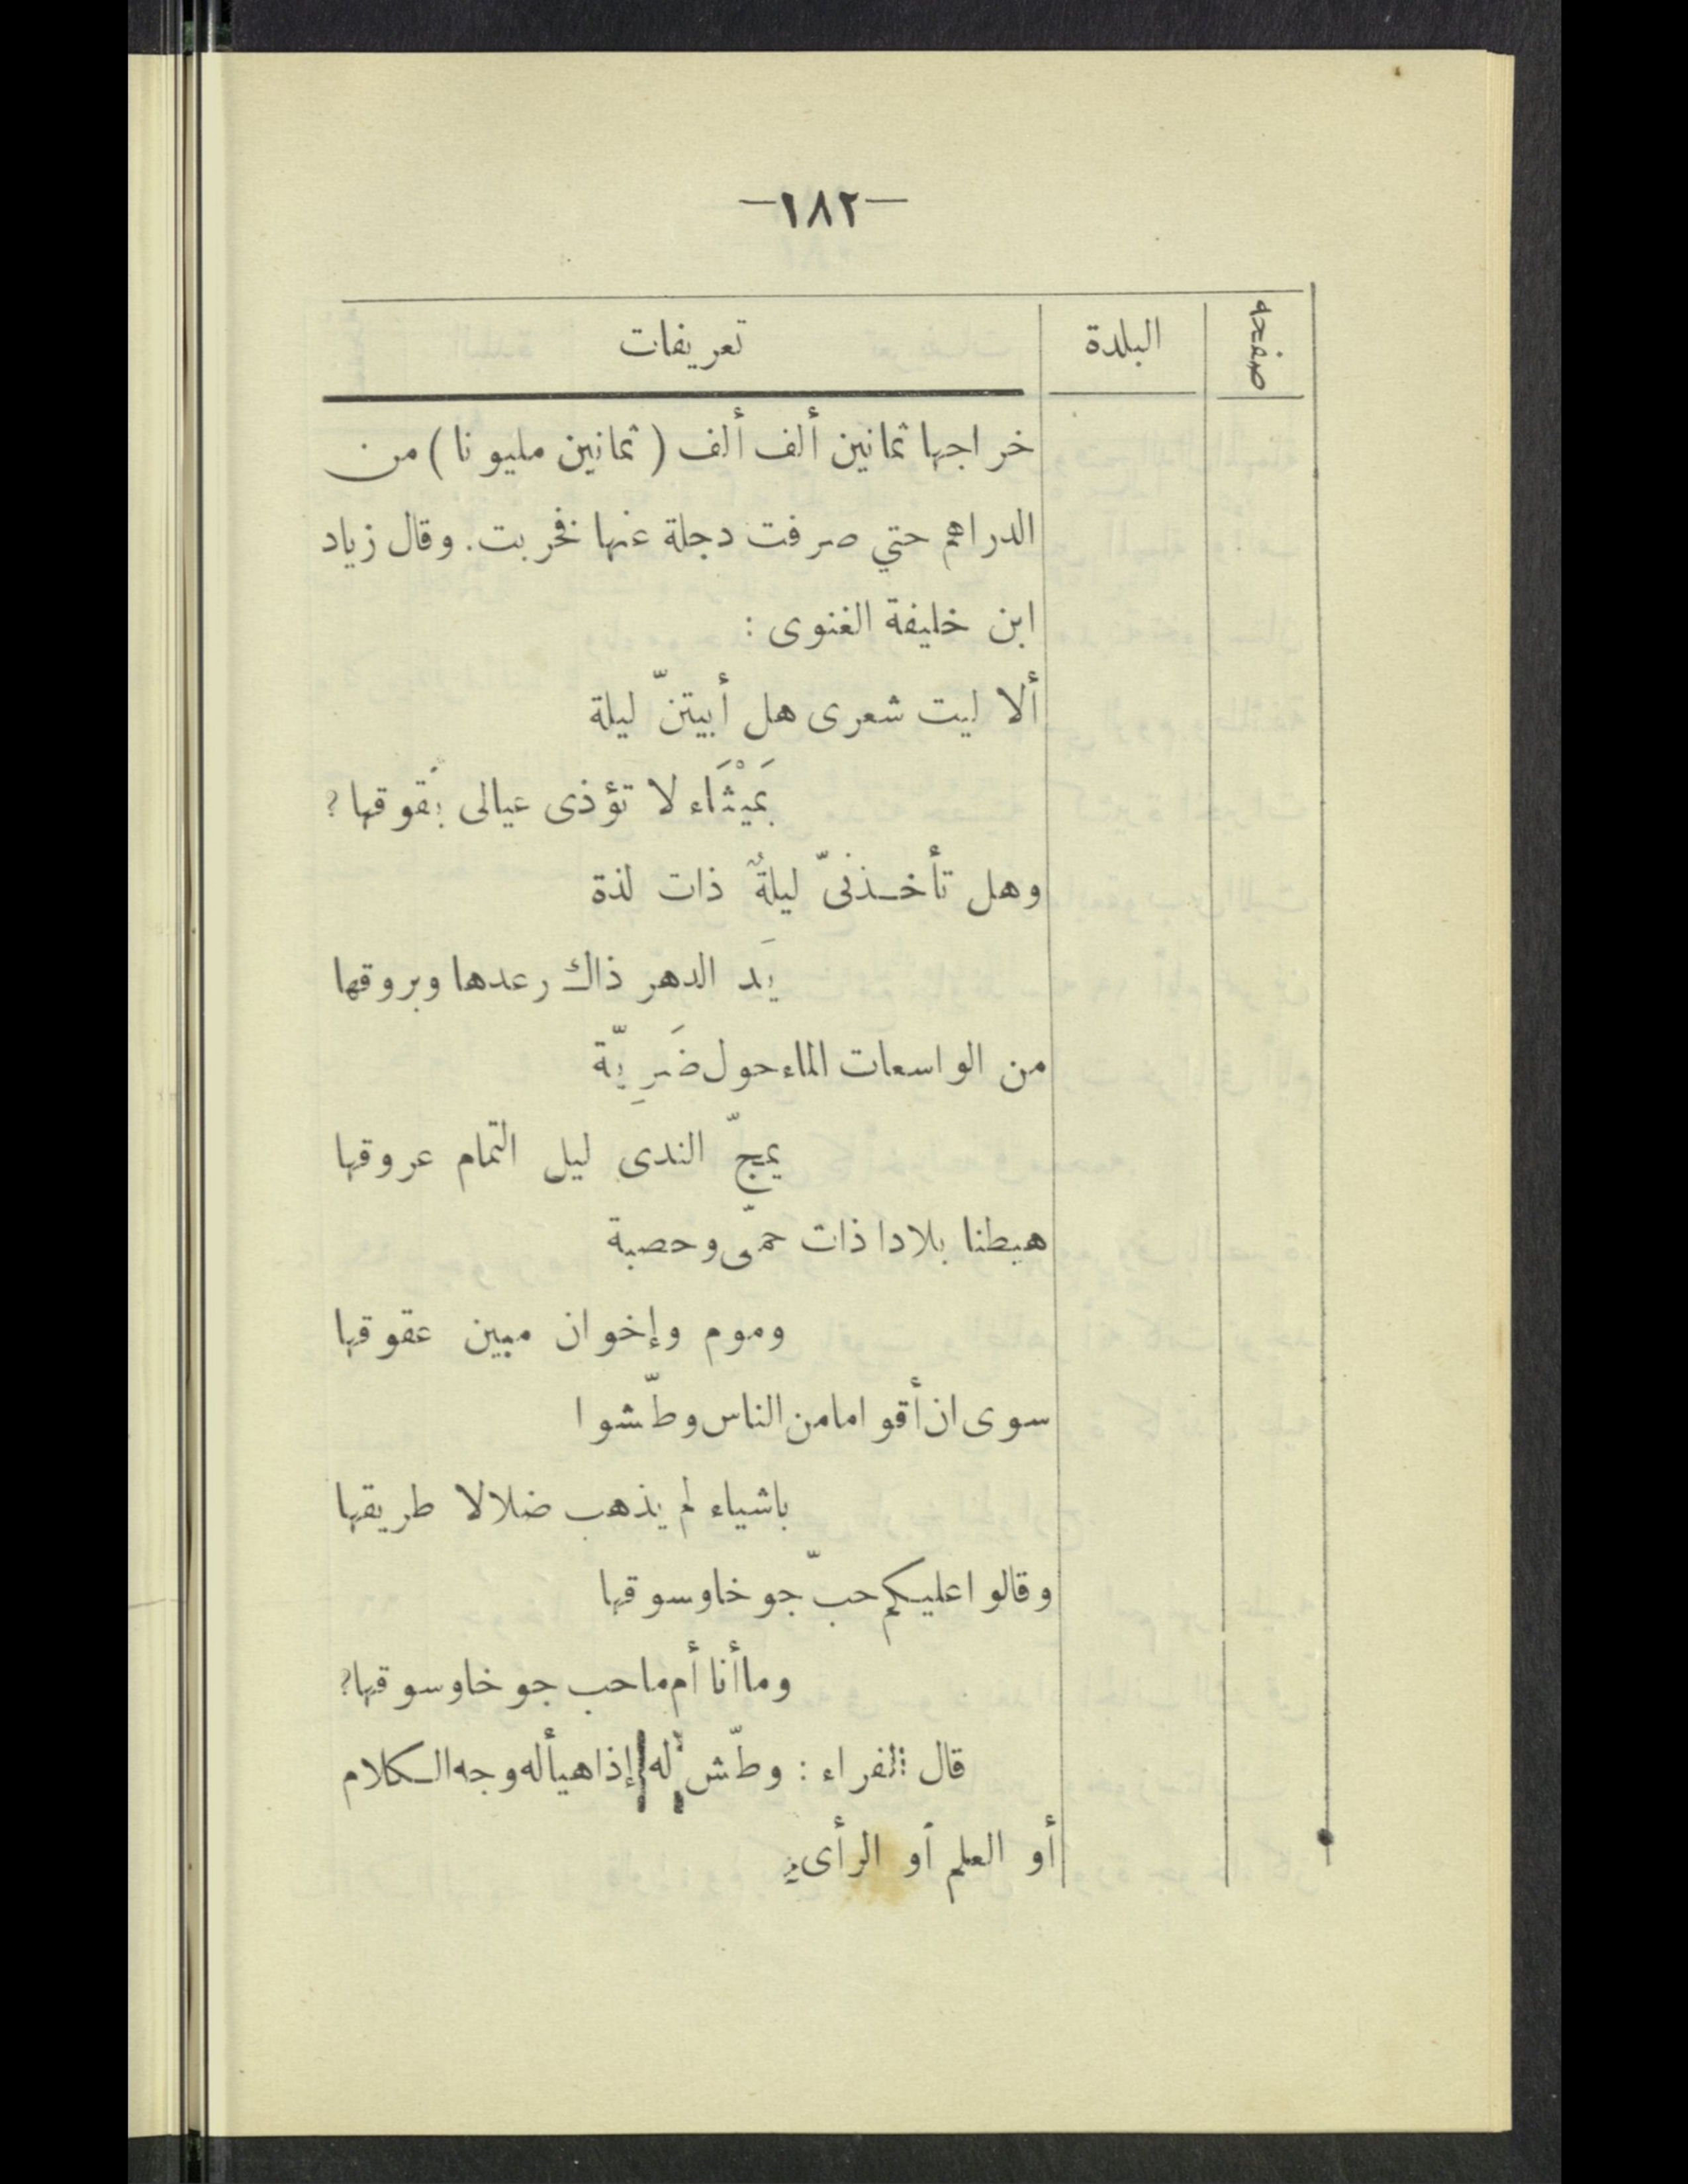 —١٨٢—
صفحه
البلدة
تعريفات
خراجها ثمانين ألف ألف (ثمانين مليونا) من
الدراهم حتي صرفت دجلة عنها فخربت. وقال زياد
ابن خليفة الغنوى :
ألا ليت شعرى هل أبيتنّ ليلة
بَمَيْثَاء لا تؤذى عيالى بُقوقها ؟
وهل تأخذنىّ ليلةٌ ذات لذة
يَد الدهر ذاك رعدها وبروقها
من الواسعات الماء حول ضَرِيّة
يمجّ الندى ليل التمام عروقها
هبطنا بلادا ذات حمّى وحصبة
وموم وإخوان مبين عقوقها
سوى ان أقواما من الناس وطّشوا
باشياء لم يذهب ضلالا طريقها
وقالوا عليكم حبّ جوخا وسوقها
وما أنا أم ما حب جوخا وسوقها؟
قال الفراء : وطّش له إذا هيأ له وجه الكلام
أو العلم أو الرأى.